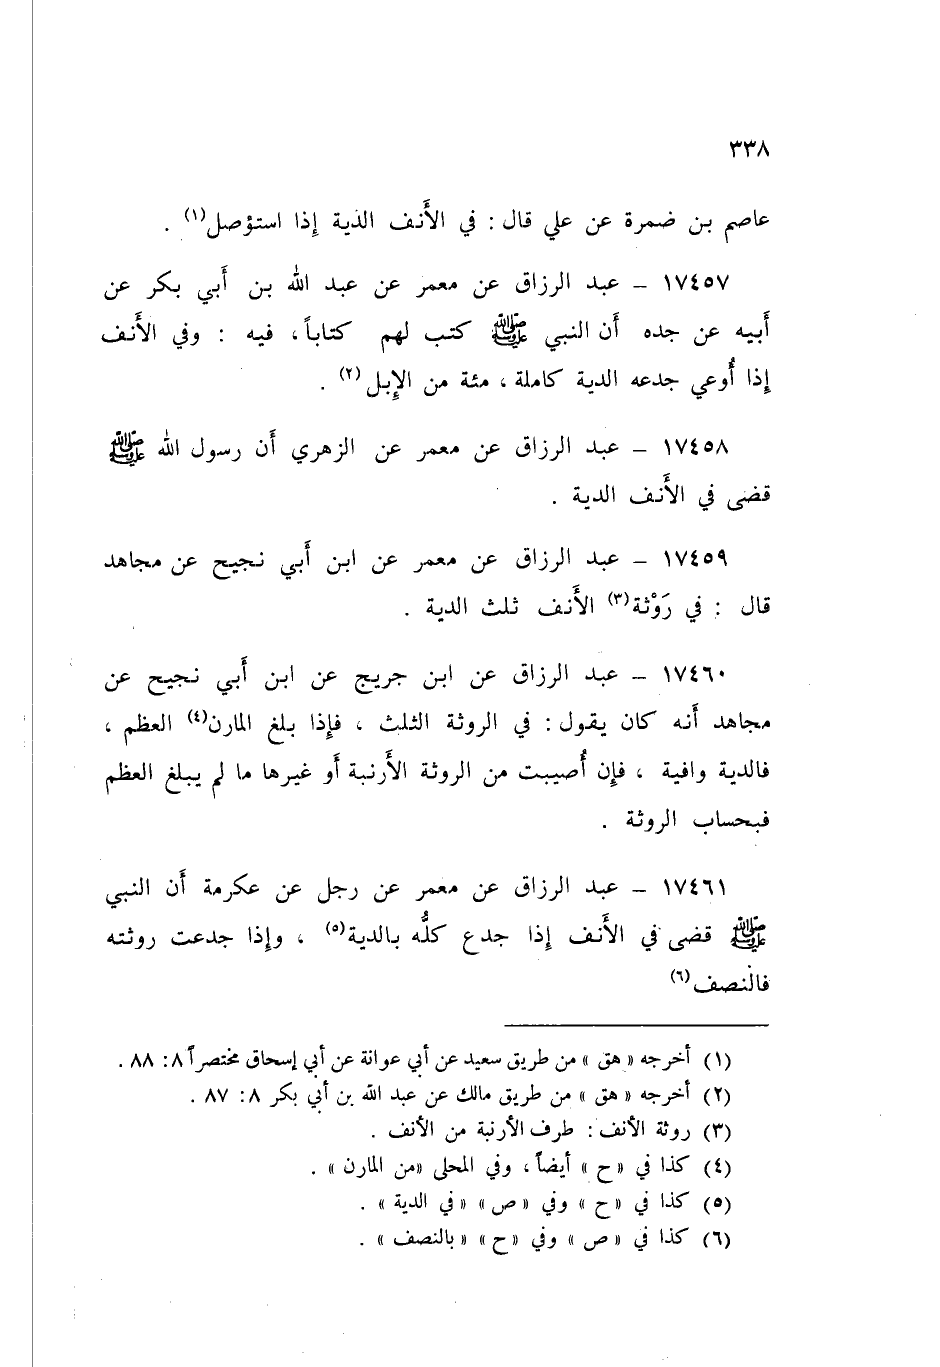 ٣٣٨
عاصم بن ضمرة عن علي قال : في الأَنف الدية إِذا استؤصل(١) .
١٧٤٥٧ – عبد الرزاق عن معمر عن عبد الله بن أَبي بكر عن
أَبيه عن جده أَن النبي ﷺ كتب لهم كتاباً ، فيه : وفي الأَنف
إِذا أُوعي جدعه الدية كاملة ، مئة من الإِبل(٢) .
١٧٤٥٨ – عبد الرزاق عن معمر عن الزهري أَن رسول الله ﷺ
قضى في الأَنف الدية .
١٧٤٥٩ – عبد الرزاق عن معمر عن ابن أَبي نجيح عن مجاهد
قال : في رَوْثة(٣) الأَنف ثلث الدية .
١٧٤٦٠ – عبد الرزاق عن ابن جريج عن ابن أَبي نجيح عن
مجاهد أَنه كان يقول : في الروثة الثلث ، فإِذا بلغ المارن(٤) العظم ،
فالدية وافية ، فإِن أُصيبت من الروثة الأَرنبة أَو غيرها ما لم يبلغ العظم
فبحساب الروثة .
١٧٤٦١ – عبد الرزاق عن معمر عن رجل عن عكرمة أَن النبي
ﷺ قضى في الأَنف إِذا جدع كلُّه بالدية(٥) ، وإِذا جدعت روثته
فالنصف(٦)
(١) أخرجه « هق » من طريق سعيد عن أبي عوانة عن أبي إسحاق مختصراً ٨ : ٨٨ .
(٢) أخرجه « هق » من طريق مالك عن عبد الله بن أبي بكر ٨ : ٨٧ .
(٣) روثة الأنف : طرف الأرنبة من الأنف .
(٤) كذا في « ح » أيضاً ، وفي المحلى «من المارن » .
(٥) كذا في « ح » وفي « ص » « في الدية » .
(٦) كذا في « ص » وفي « ح » « بالنصف » .